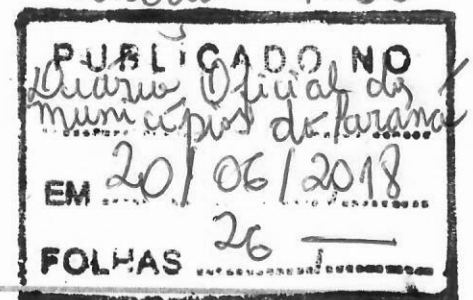 PUBLICADO NO
Diário Oficial dos
municípios do Paraná
EM 20/06/2018
FOLHAS 26